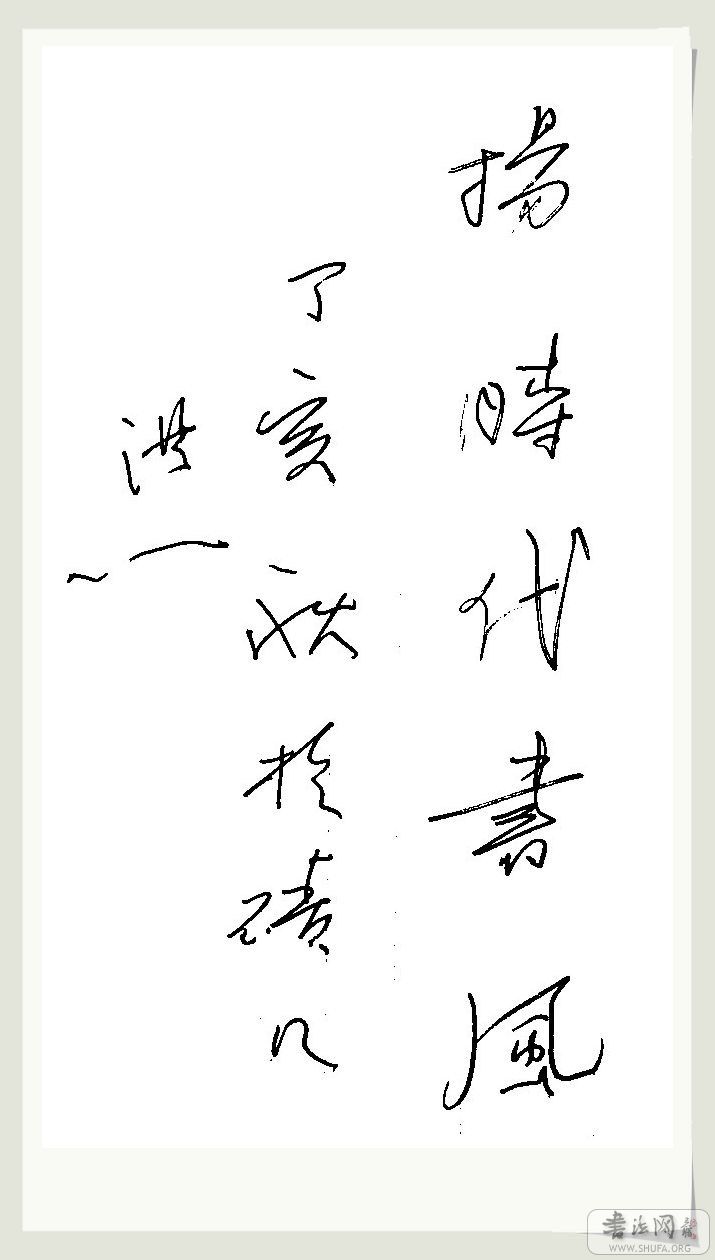 揚時代書風
丁亥秋於磧口
洪一
书法网
WWW.SHUFA.ORG